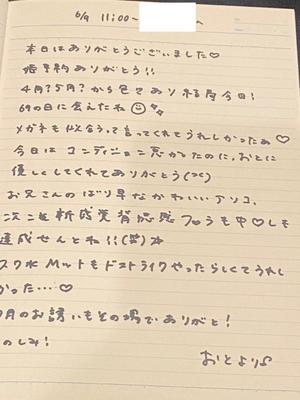 6/9 11:00〜 へ
本日はありがとうございました♡
姫予約ありがとう!!
4月?5月?から色々あり結局今日!
69の日に会えたね
メガネも似合うって言ってくれてうれしかったぁ♡
今日はコンディション悪かったのに、おとに
優しくしてくれてありがとう
お兄さんのばり早なかわいいアソコ、
次こそ新感覚背面感フロうも中♡しも
達成せんとね!!(笑)☆
スク水Mルートもドストライクやったらしくてうれし
かった…♡
7月のお誘いもその場でありがと!
のしみ!
おとより♪